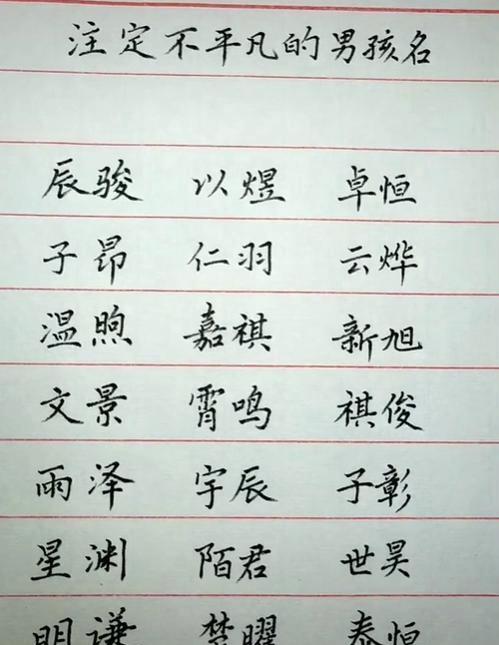 注定不平凡的男孩名
辰骏 以煜 卓恒
子昂 仁羽 云烨
温煦 嘉祺 新旭
文景 霄鸣 祺俊
雨泽 宇辰 子彰
星渊 陌君 世昊
明谦 楚曜 泰恒